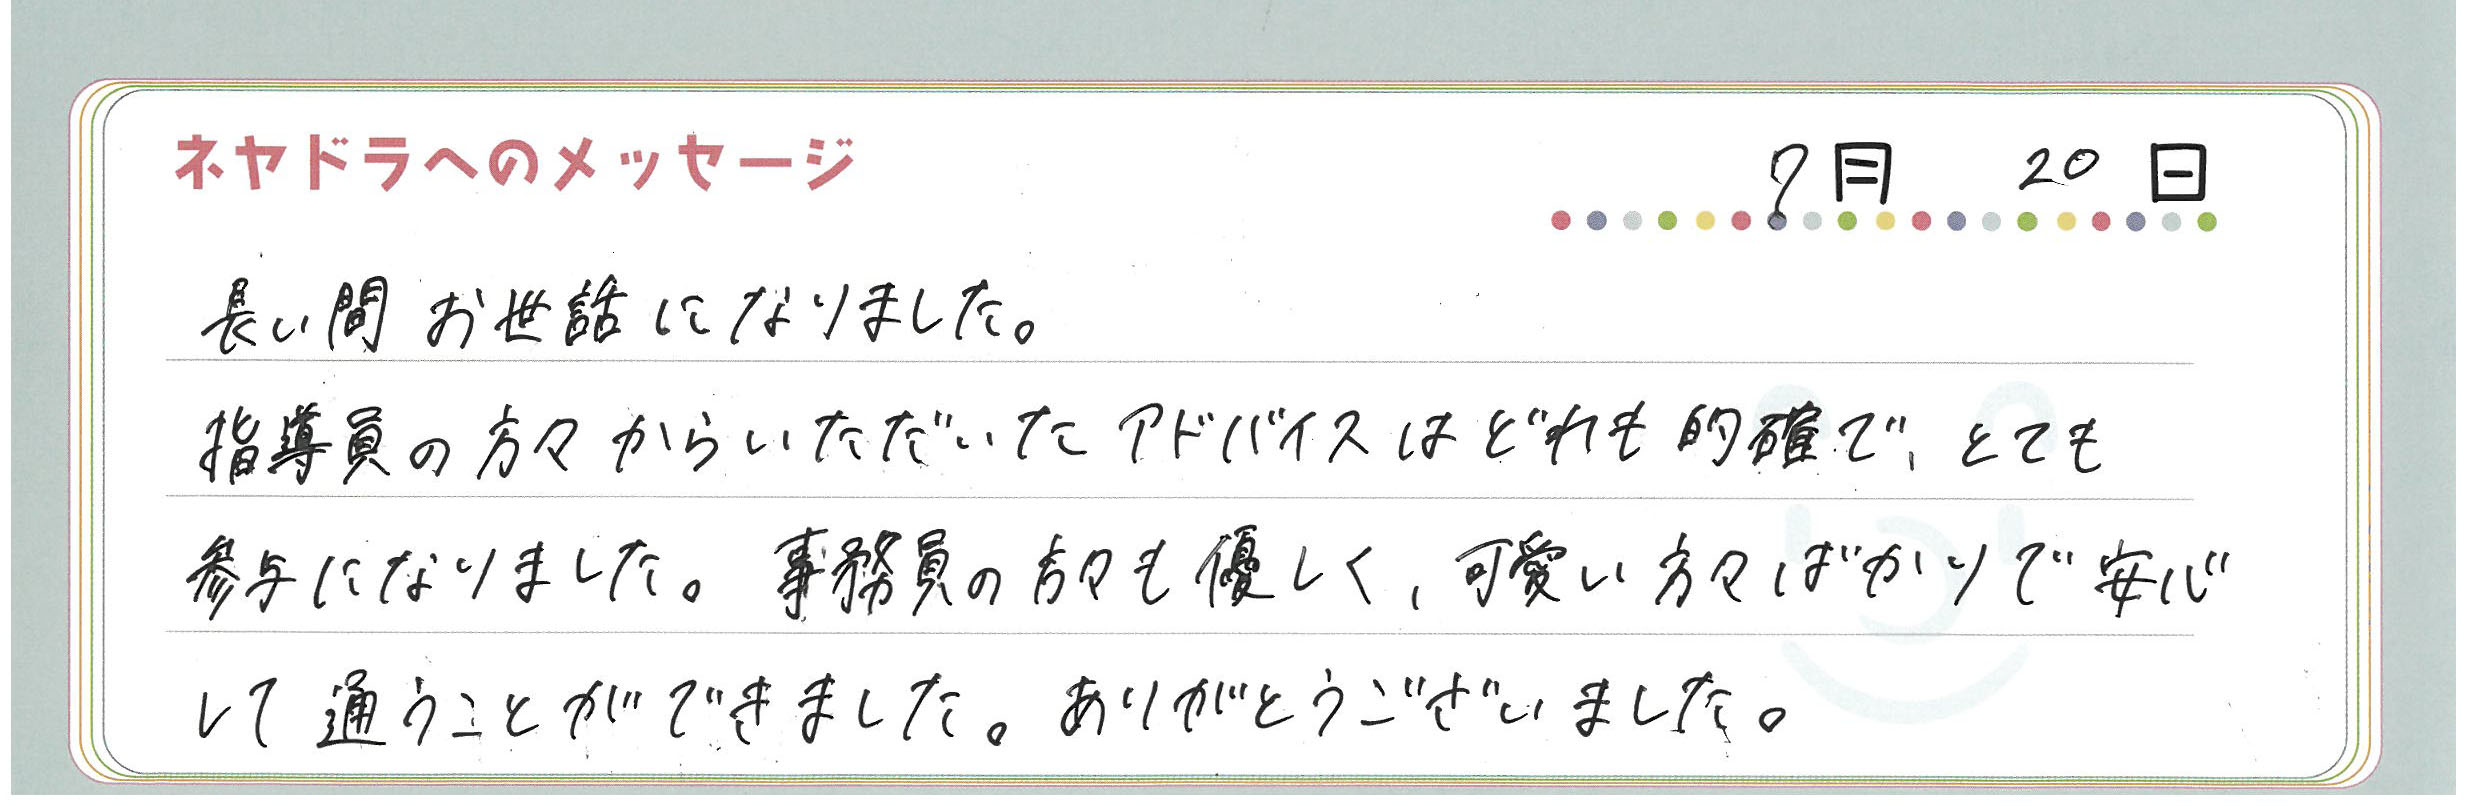 ネヤドラへのメッセージ 7月 20日
長い間お世話になりました。
指導員の方々からいただいたアドバイスはどれも的確で、とても
参与になりました。事務員の方々も優しく、可愛い方々ばかりで安心
して通うことができました。ありがとうございました。